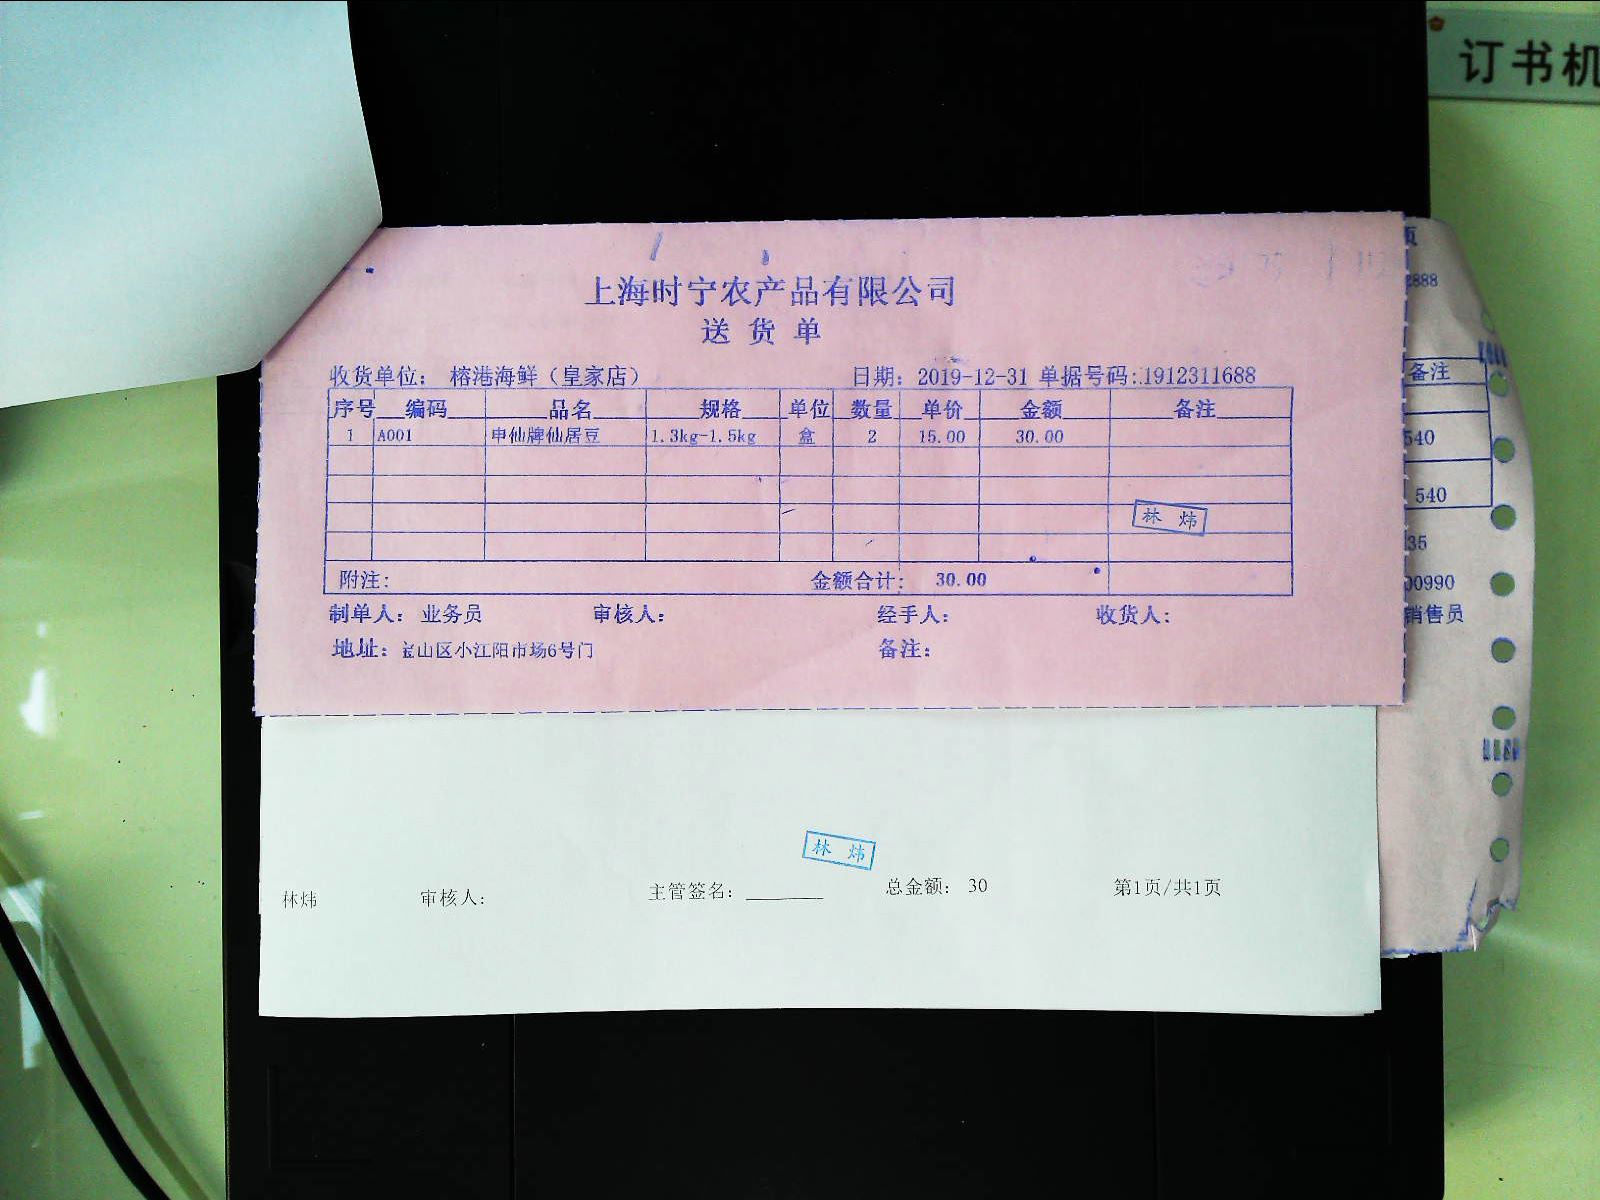 订书机
上海时宁农产品有限公司
送 货 单
收货单位： 榕港海鲜（皇家店） 日期：2019-12-31 单据号码:.1912311688
序号 编码 品名 规格 单位 数量 单价 金额 备注
1 A001 申仙牌仙居豆 1.3kg-1.5kg 盒 2 15.00 30.00
林 炜
附注: 金额合计: 30.00
制单人: 业务员 审核人: 经手人: 收货人:
地址: 宝山区小江阳市场6号门 备注:
页
2888
备注
540
540
35
00990
销售员
林 炜
林炜 审核人: 主管签名: 总金额: 30 第1页/共1页